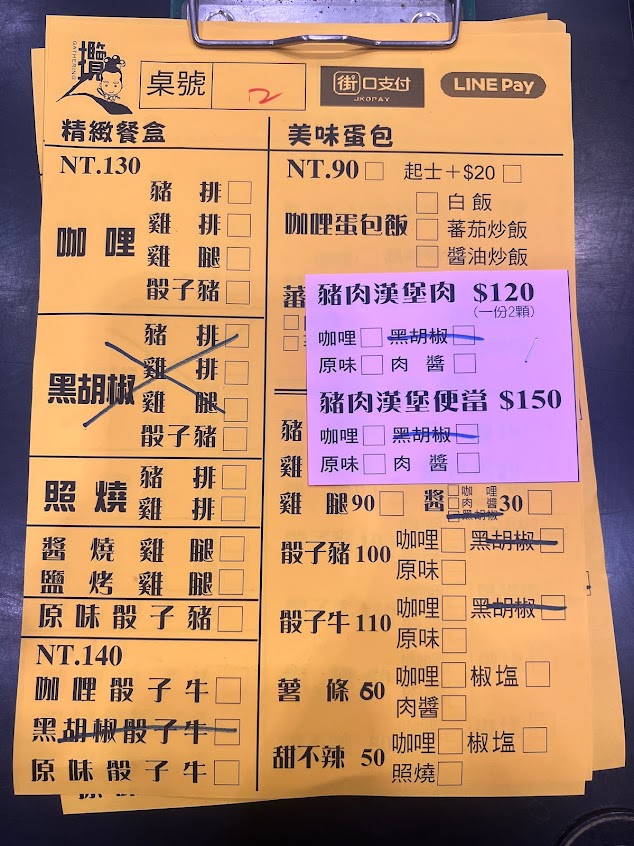 攬
GATHERING
桌號
2
街口支付
JKOPAY
LINE Pay
精緻餐盒
NT.130
咖哩
豬排
雞排
雞腿
骰子豬
黑胡椒
豬排
雞排
雞腿
骰子豬
照燒
豬排
雞排
醬燒雞腿
鹽烤雞腿
原味骰子豬
NT.140
咖哩骰子牛
黑胡椒骰子牛
原味骰子牛
美味蛋包
NT.90 起士+$20
咖哩蛋包飯
白飯
蕃茄炒飯
醬油炒飯
蕃
豬肉漢堡肉 $120
(一份2顆)
咖哩 黑胡椒
原味 肉醬
豬肉漢堡便當 $150
咖哩 黑胡椒
原味 肉醬
豬
雞
雞腿90
醬 咖哩 肉醬 黑胡椒 30
骰子豬100 咖哩 黑胡椒
原味
骰子牛110 咖哩 黑胡椒
原味
薯條50 咖哩 椒塩
肉醬
甜不辣50 咖哩 椒塩
照燒